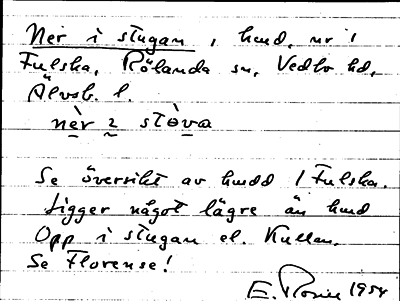 Ner i stugan, hmd, nr 1
Fulska, Rölanda sn, Vedbo hd,
Älvsb. l.
nèr 2 stòva
Se översikt av hmdd / Fulska.
Ligger något lägre än hmd
Opp i stugan el. Kullen.
Se Florense!
E. 1954